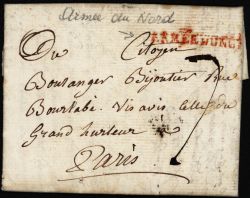 Armée du Nord
Du Citoyen
Boulanger Bijoutier Rue
Bourlabé Vis avis
Grand hurleur
Paris